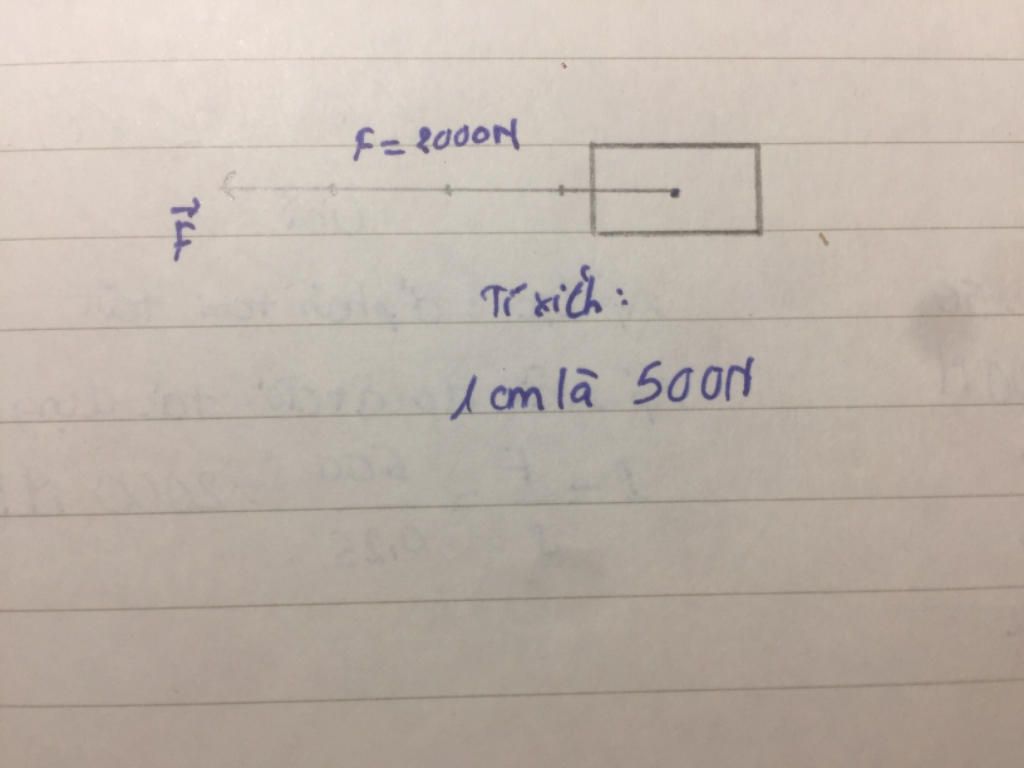 F = 2000N
F
Tỉ xích:
1 cm là 500N